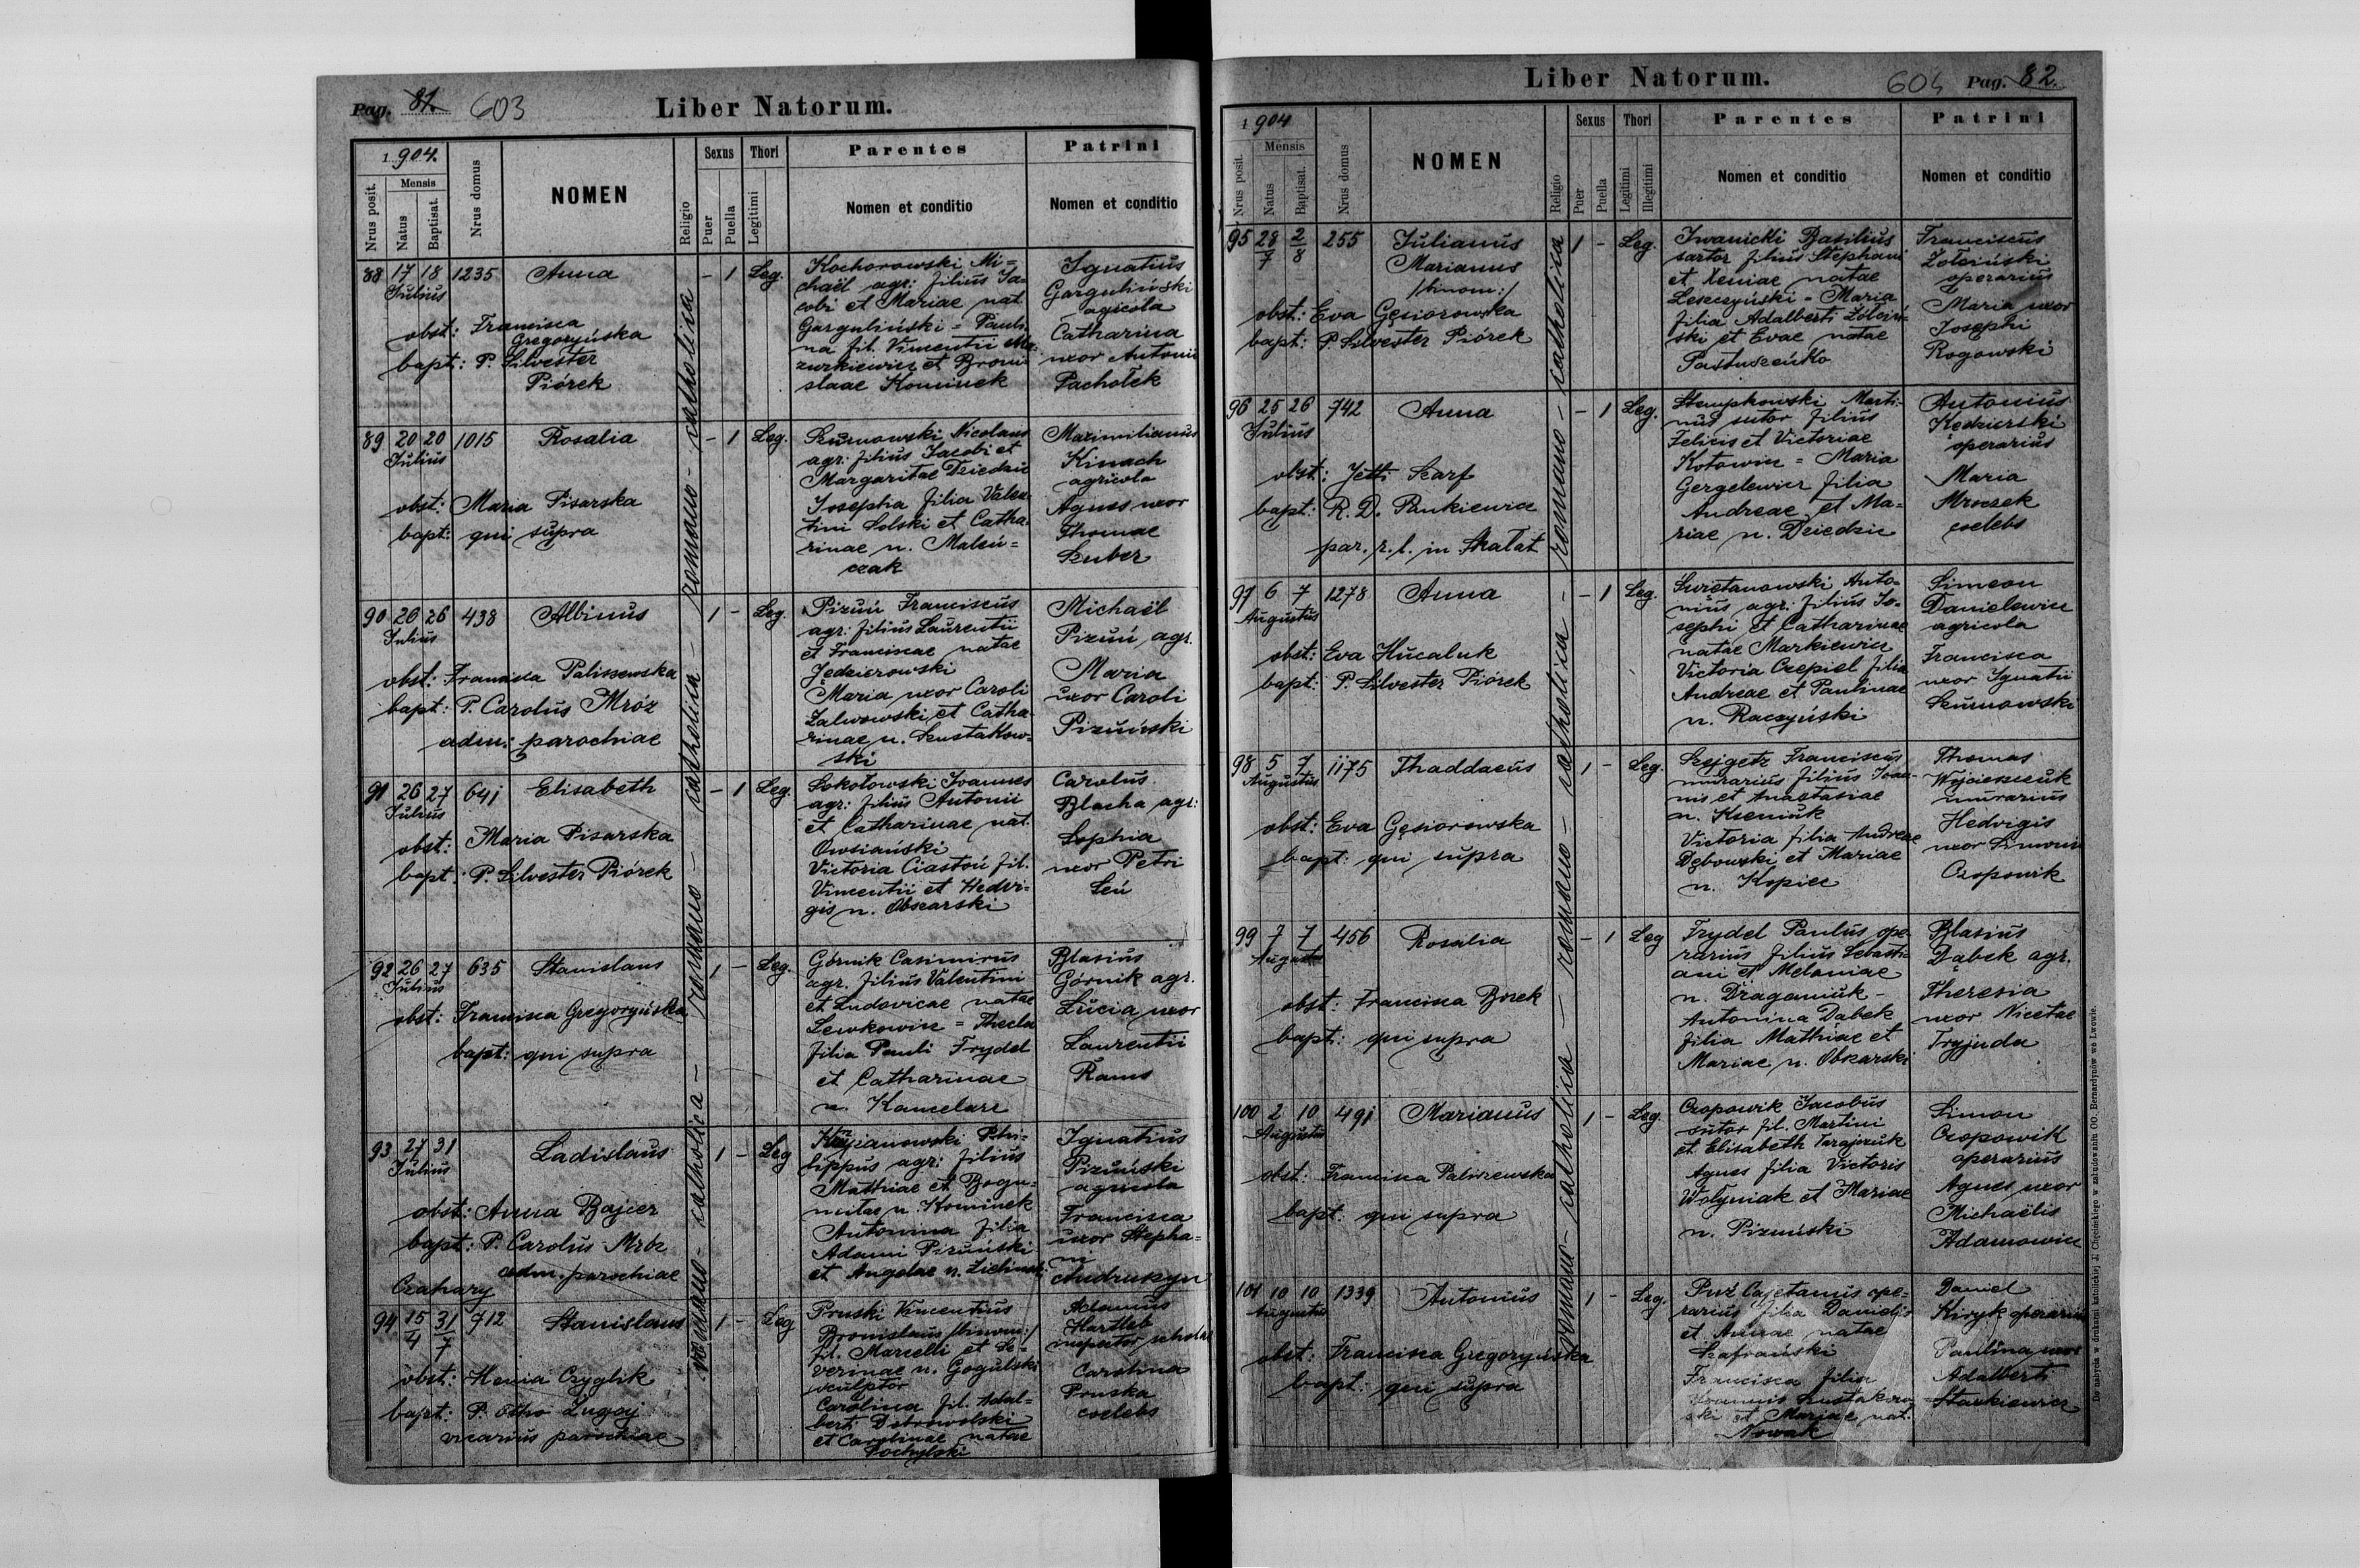 Pag. 81. 603 Liber Natorum.
1904.
Nrus posit.
Mensis
Natus
Baptisat.
Nrus domus
NOMEN
Religio
Sexus
Puer
Puella
Thori
Legitimi
Parentes
Nomen et conditio
Patrini
Nomen et conditio
romano - catholica - romano - catholica - romano - catholica - romano - catholica
88 17 18 1235 Anna - 1 Leg.
Julius
obst: Francisca
Gregoryńska
bapt: P. Silvester
Piórek
Kochorowski Mi=
chaël agr: filius Ja=
cobi et Mariae nat.
Garguliński = Pauli=
na fil. Vincentii Ma=
zurkiewicz et Broni=
slaae Kominek
Ignatius
Garguliński
agricola
Catharina
uxor Antonii
Pachołek
89 20 20 1015 Rosalia - 1 Leg.
Julius
obst: Maria Pisarska
bapt: qui supra
Szurnowski Nicolaus
agr: filius Jacobi et
Margaritae Dziedzic
Josepha filia Valen=
tini Solski et Catha=
rinae n. Maleń=
czak
Maximilianus
Kinach
agricola
Agnes uxor
Thomae
Szuber
90 26 26 438 Albinus 1 - Leg.
Julius
obst: Francisca Paliszewska
bapt: P. Carolus Mróz
adm: parochiae
Pizuń Franciscus
agr: filius Laurentii
et Franciscae natae
Jędzierowski
Maria uxor Caroli
Zalwowski et Catha=
rinae n. Szustakow=
ski
Michaël
Pizuń agr.
Maria
uxor Caroli
Pizuński
91 26 27 641 Elisabeth - 1 Leg.
Julius
obst: Maria Pisarska
bapt: P. Silvester Piórek
Sokołowski Joannes
agr: filius Antonii
et Catharinae nat.
Owsiański
Victoria Ciastoń fil.
Vincentii et Hedvi=
gis n. Obszarski
Carolus
Blacha agr:
Sophia
uxor Petri
Seń
92 26 27 635 Stanislaus 1 - Leg.
Julius
obst: Francisca Gregoryńska
bapt: qui supra
Górnik Casimirus
agr. filius Valentini
et Ludovicae natae
Lewkowicz = Thecla
filia Pauli Frydel
et Catharinae
n. Kancelarz
Blasius
Górnik agr.
Lucia uxor
Laurentii
Rams
93 27 31 Ladislaus 1 - Leg
Julius
obst: Anna Bajcer
bapt: P. Carolus Mróz
adm. parochiae
Czahary
Krzyzanowski Phi=
lippus agr: filius
Mathiae et Bogu=
mitae n. Kominek
Antonina filia
Adami Pizuński
et Angelae n. Zielinski
Ignatius
Pizuński
agricola
Francisca
uxor Stepha=
ni
Andruszyn
94 15/4 31/7 912 Stanislaus 1 - Leg
obst: Henia Czyglik
bapt: P. Otho Lugaj
vicarius parochiae
Pruski Vincentius
Bronislaus /binom:/
fil. Marcelli et Se=
verinae n. Gogulski
sculptor
Carolina fil. Adal=
berti Dobrowolski
et Carolinae natae
Pochylski
Adamus
Hartleb
inspector scholae
Carolina
Pruska
coelebs
Liber Natorum. 604 Pag. 82.
1904
Nrus posit.
Mensis
Natus
Baptisat.
Nrus domus
NOMEN
Religio
Sexus
Puer
Puella
Thori
Legitimi
Illegitimi
Parentes
Nomen et conditio
Patrini
Nomen et conditio
romano - catholica - romano - catholica - romano - catholica
95 28/7 2/8 255 Julianus 1 - Leg.
Marianus
/binom:/
obst: Eva Gęsiorowska
bapt: P. Silvester Piórek
Iwanicki Basilius
sartor filius Stephani
et Xeniae natae
Leszczyński = Maria
filia Adalberti Żółciń=
ski et Evae natae
Pastuszeńko
Franciscus
Żółciński
operarius
Maria uxor
Josephi
Rogowski
96 25 26 742 Anna - 1 Leg.
Julius
obst: Jetti Scarf
bapt: R. D. Pankiewicz
par. r. l. in Skałat
Stempkowski Marti=
nus sutor filius
Felicis et Victoriae
Kotowicz = Maria
Gergelewicz filia
Andreae et Ma=
riae n. Dziedzic
Antonius
Kędzierski
operarius
Maria
Mroczek
coelebs
97 6 7 1278 Anna - 1 Leg.
Augustus
obst: Eva Hucaluk
bapt: P. Silvester Piórek
Swiętanowski Anto=
nius agr: filius Jo=
sephi et Catharinae
natae Markiewicz
Victoria Czepiel filia
Andreae et Paulinae
n. Raczyński
Simeon
Danielewicz
agricola
Francisca
uxor Ignatii
Szurnowski
98 5 7 1175 Thaddaeus 1 - Leg.
Augustus
obst: Eva Gęsiorowska
bapt: qui supra
Szejgetz Franciscus
murarius filius Joan=
nis et Anastasiae
n. Kseniuk
Victoria filia Andreae
Dębowski et Mariae
n. Kopiec
Thomas
Wojcieszczuk
murarius
Hedvigis
uxor Simonis
Czopowik
99 7 7 456 Rosalia - 1 Leg
Augustus
obst: Francisca Bosek
bapt: qui supra
Frydel Paulus ope=
rarius filius Sebasti=
ani et Melaniae
n. Draganiuk -
Antonina Dąbek
filia Mathiae et
Mariae n. Obszarski
Blasius
Dąbek agr.
Theresia
uxor Nicetae
Tryjuda
100 2 10 491 Marianus 1 - Leg.
Augustus
obst: Francisca Paliszewska
bapt: qui supra
Czopowik Jacobus
sutor fil. Martini
et Elisabeth Tarajczuk
Agnes filia Victoris
Wołyniak et Mariae
n. Pizuński
Simon
Czopowik
operarius
Agnes uxor
Michaëlis
Adamowicz
101 10 10 1339 Antonius 1 - Leg.
Augustus
obst: Francisca Gregoryńska
bapt: qui supra
Puź Cajetanus ope=
rarius filia Danielis
et Annae natae
Szafrański
Francisca filia
Joannis Szustakow=
ski et Mariae nat.
Nowak
Daniel
Kiryk operarius
Paulina uxor
Adalberti
Stankiewicz
Do nabycia w drukarni katolickiej J. Chęcińskiego w zabudowaniu OO. Bernardynów we Lwowie.